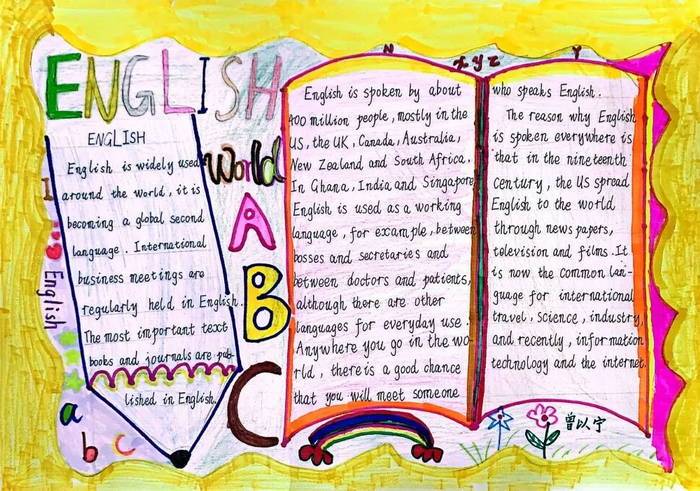 ENGLISH
World
A
B
C
ENGLISH
English is widely used
around the world, it is
becoming a global second
language. International
business meetings are
regularly held in English.
The most important text
books and journals are pub-
lished in English.
I
English
a
b
c
N
xyz
Y
English is spoken by about
400 million people, mostly in the
US, the UK, Canada, Australia,
New Zealand and South Africa.
In Ghana, India and Singapore
English is used as a working
language, for example, between
bosses and secretaries and
between doctors and patients,
although there are other
languages for everyday use.
Anywhere you go in the wo-
rld, there is a good chance
that you will meet someone
who speaks English.
The reason why English
is spoken everywhere is
that in the nineteenth
century, the US spread
English to the world
through news papers,
television and films. It
is now the common lan-
guage for international
travel, science, industry,
and recently, information
technology and the internet.
曾以宁